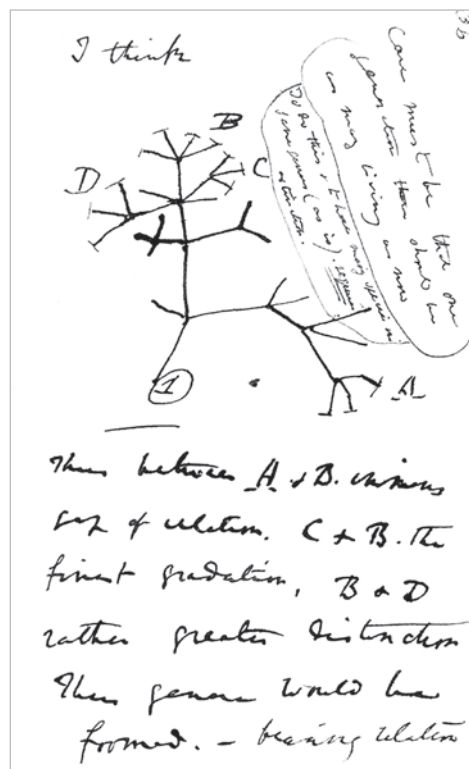 36
I think
Case must be that one
generation then should be
as many living as now
To do this & to have many species in
same genus (as is). requires
extinction.
B
D
C
A
1
Thus between A & B. immense
gap of relation. C & B. the
finest gradation, B & D
rather greater distinction
Thus genera would be
formed. — bearing relation